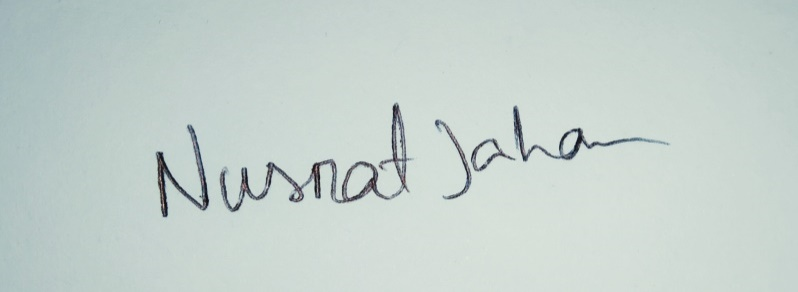 Nusrat Jahan